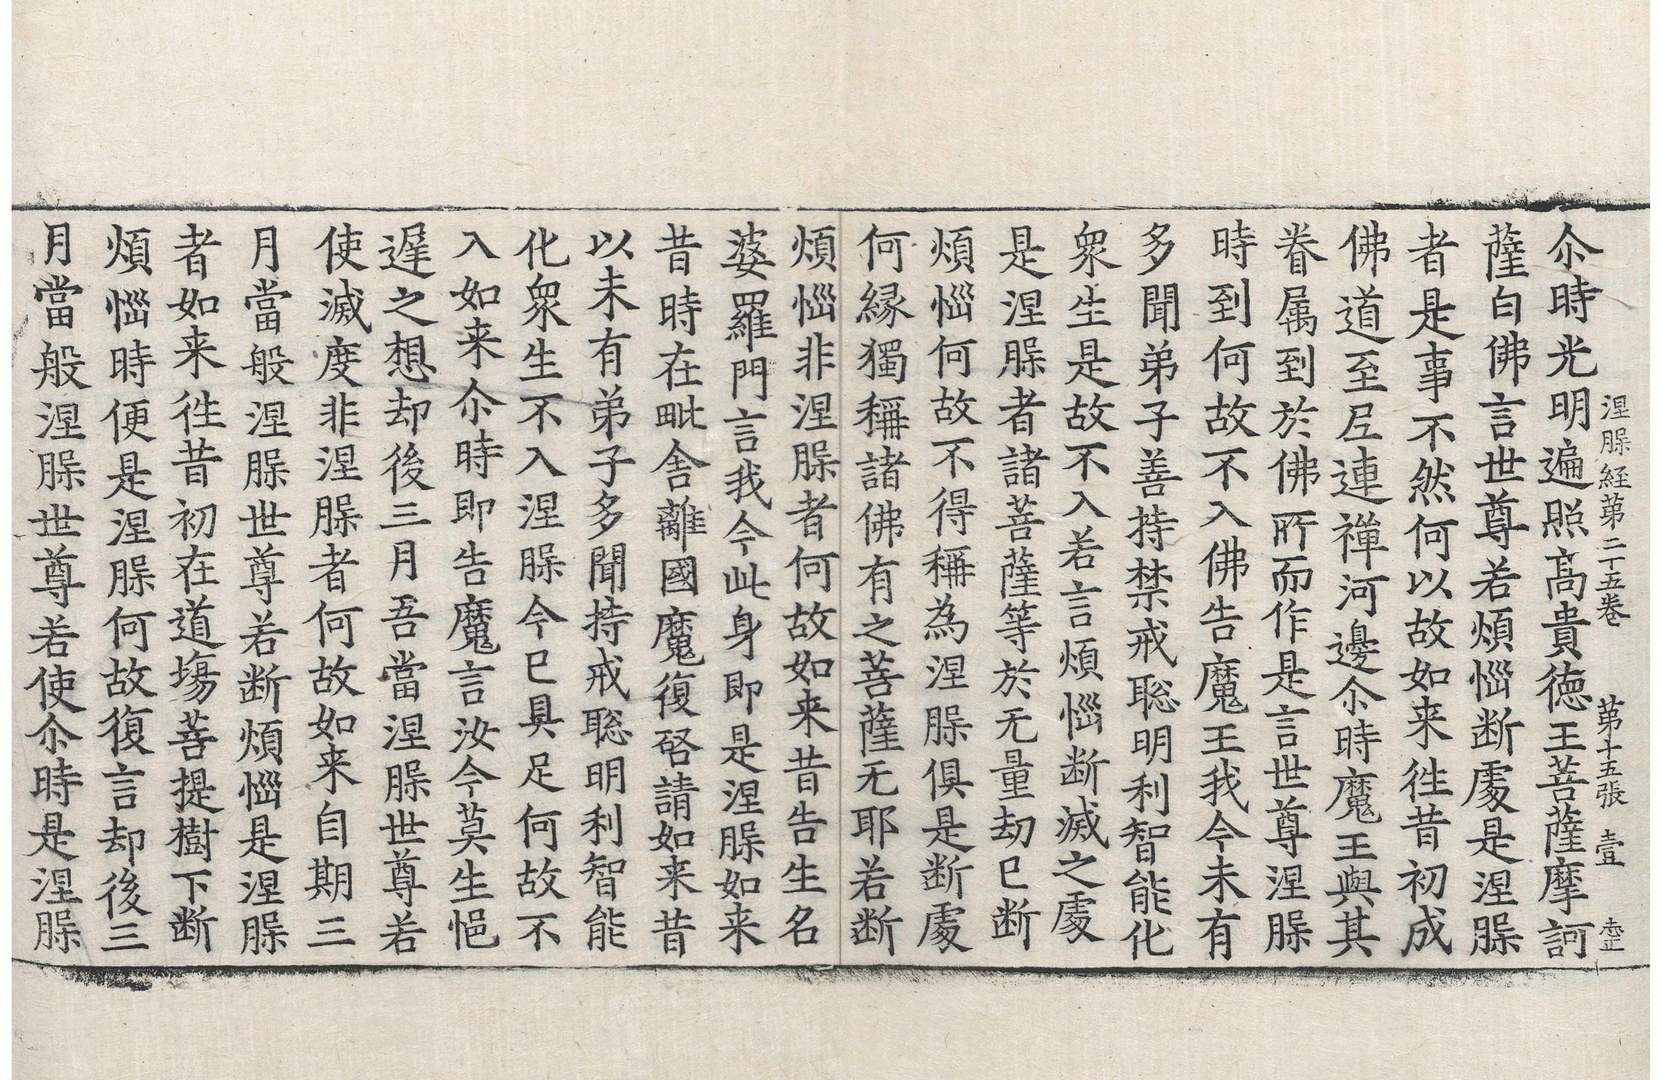 涅槃経第二十五卷　第十五張　壹
尒時光明遍照髙貴徳王菩薩摩訶
薩白佛言世尊若煩惱断處是涅槃
者是事不然何以故如来徃昔初成
佛道至尼連禪河邊尒時魔王與其
眷属到於佛所而作是言世尊涅槃
時到何故不入佛告魔王我今未有
多聞弟子善持禁戒聡明利智能化
衆生是故不入若言煩惱断滅之處
是涅槃者諸菩薩等於无量劫已断
煩惱何故不得稱為涅槃俱是断處
何縁獨稱諸佛有之菩薩无耶若断
煩惱非涅槃者何故如来昔告生名
婆羅門言我今此身即是涅槃如来
昔時在毗舎離國魔復啓請如来昔
以未有弟子多聞持戒聡明利智能
化衆生不入涅槃今已具足何故不
入如来尒時即告魔言汝今莫生悒
遅之想却後三月吾當涅槃世尊若
使滅度非涅槃者何故如来自期三
月當般涅槃世尊若断煩惱是涅槃
者如来徃昔初在道塲菩提樹下断
煩惱時便是涅槃何故復言却後三
月當般涅槃世尊若使尒時是涅槃